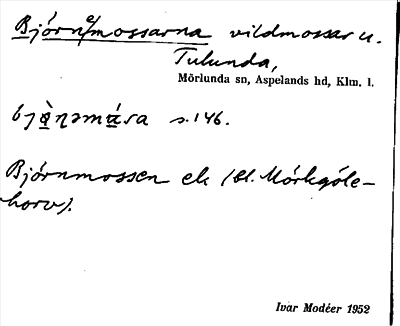 Björn/emossarna vildmossar u.
Tulunda,
Mörlunda sn, Aspelands hd, Klm. l.
s. 146.
Björnmossen ek (bl. Mörkgöle-
horv).
Ivar Modéer 1952